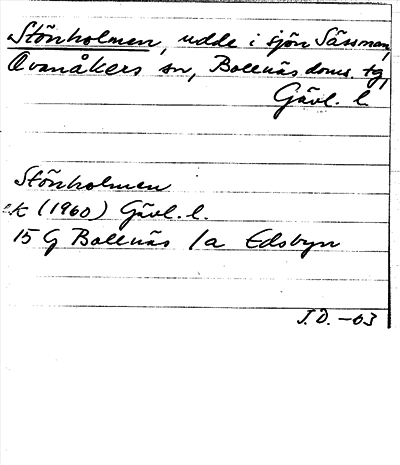 Stönholmen, udde i sjön Sässman,
Ovanåkers sn, Bollnäs doms. tg,
Gävl. l.
Stönholmen
ek (1960) Gävl. l.
15 G Bollnäs 1a Edsbyn
J.D. -63